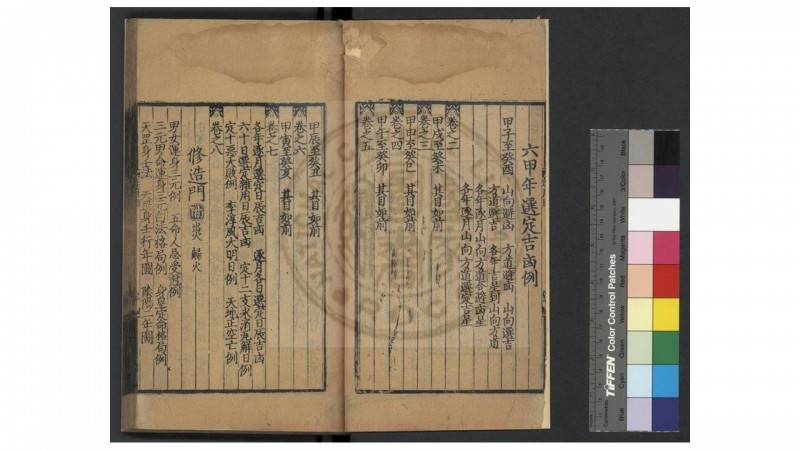 六甲年選定吉凶例
甲子至癸酉 山向避凶 方道避凶 山向選吉
方道避凶 各年吉星到山向方道
各年逐月山向方道合避凶星
各年逐月山向方道選定吉星
卷之二
甲戌至癸未 其目如前
卷之三
甲申至癸巳 其目如前
卷之四
甲午至癸卯 其目如前
卷之五
甲辰至癸丑 其目如前
卷之六
甲寅至癸亥 其目如前
卷之七
各年逐月選定日辰吉凶 逐月各日選定日辰吉凶
六十日選定雜用日辰吉凶 定十二支水消瓦解日例
定十惡大敗例 李淳風大明日例 天地正空亡例
卷之八
修造門 歸火
男女運身三元例 五命人 例
三元男命運身三元白法格局例 身皇定命格局例
天罡 法 年圖 年圖
Black
3/Color
White
Magenta
Red
Yellow
Green
Cyan
Blue
TIFFEN Color Control Patches